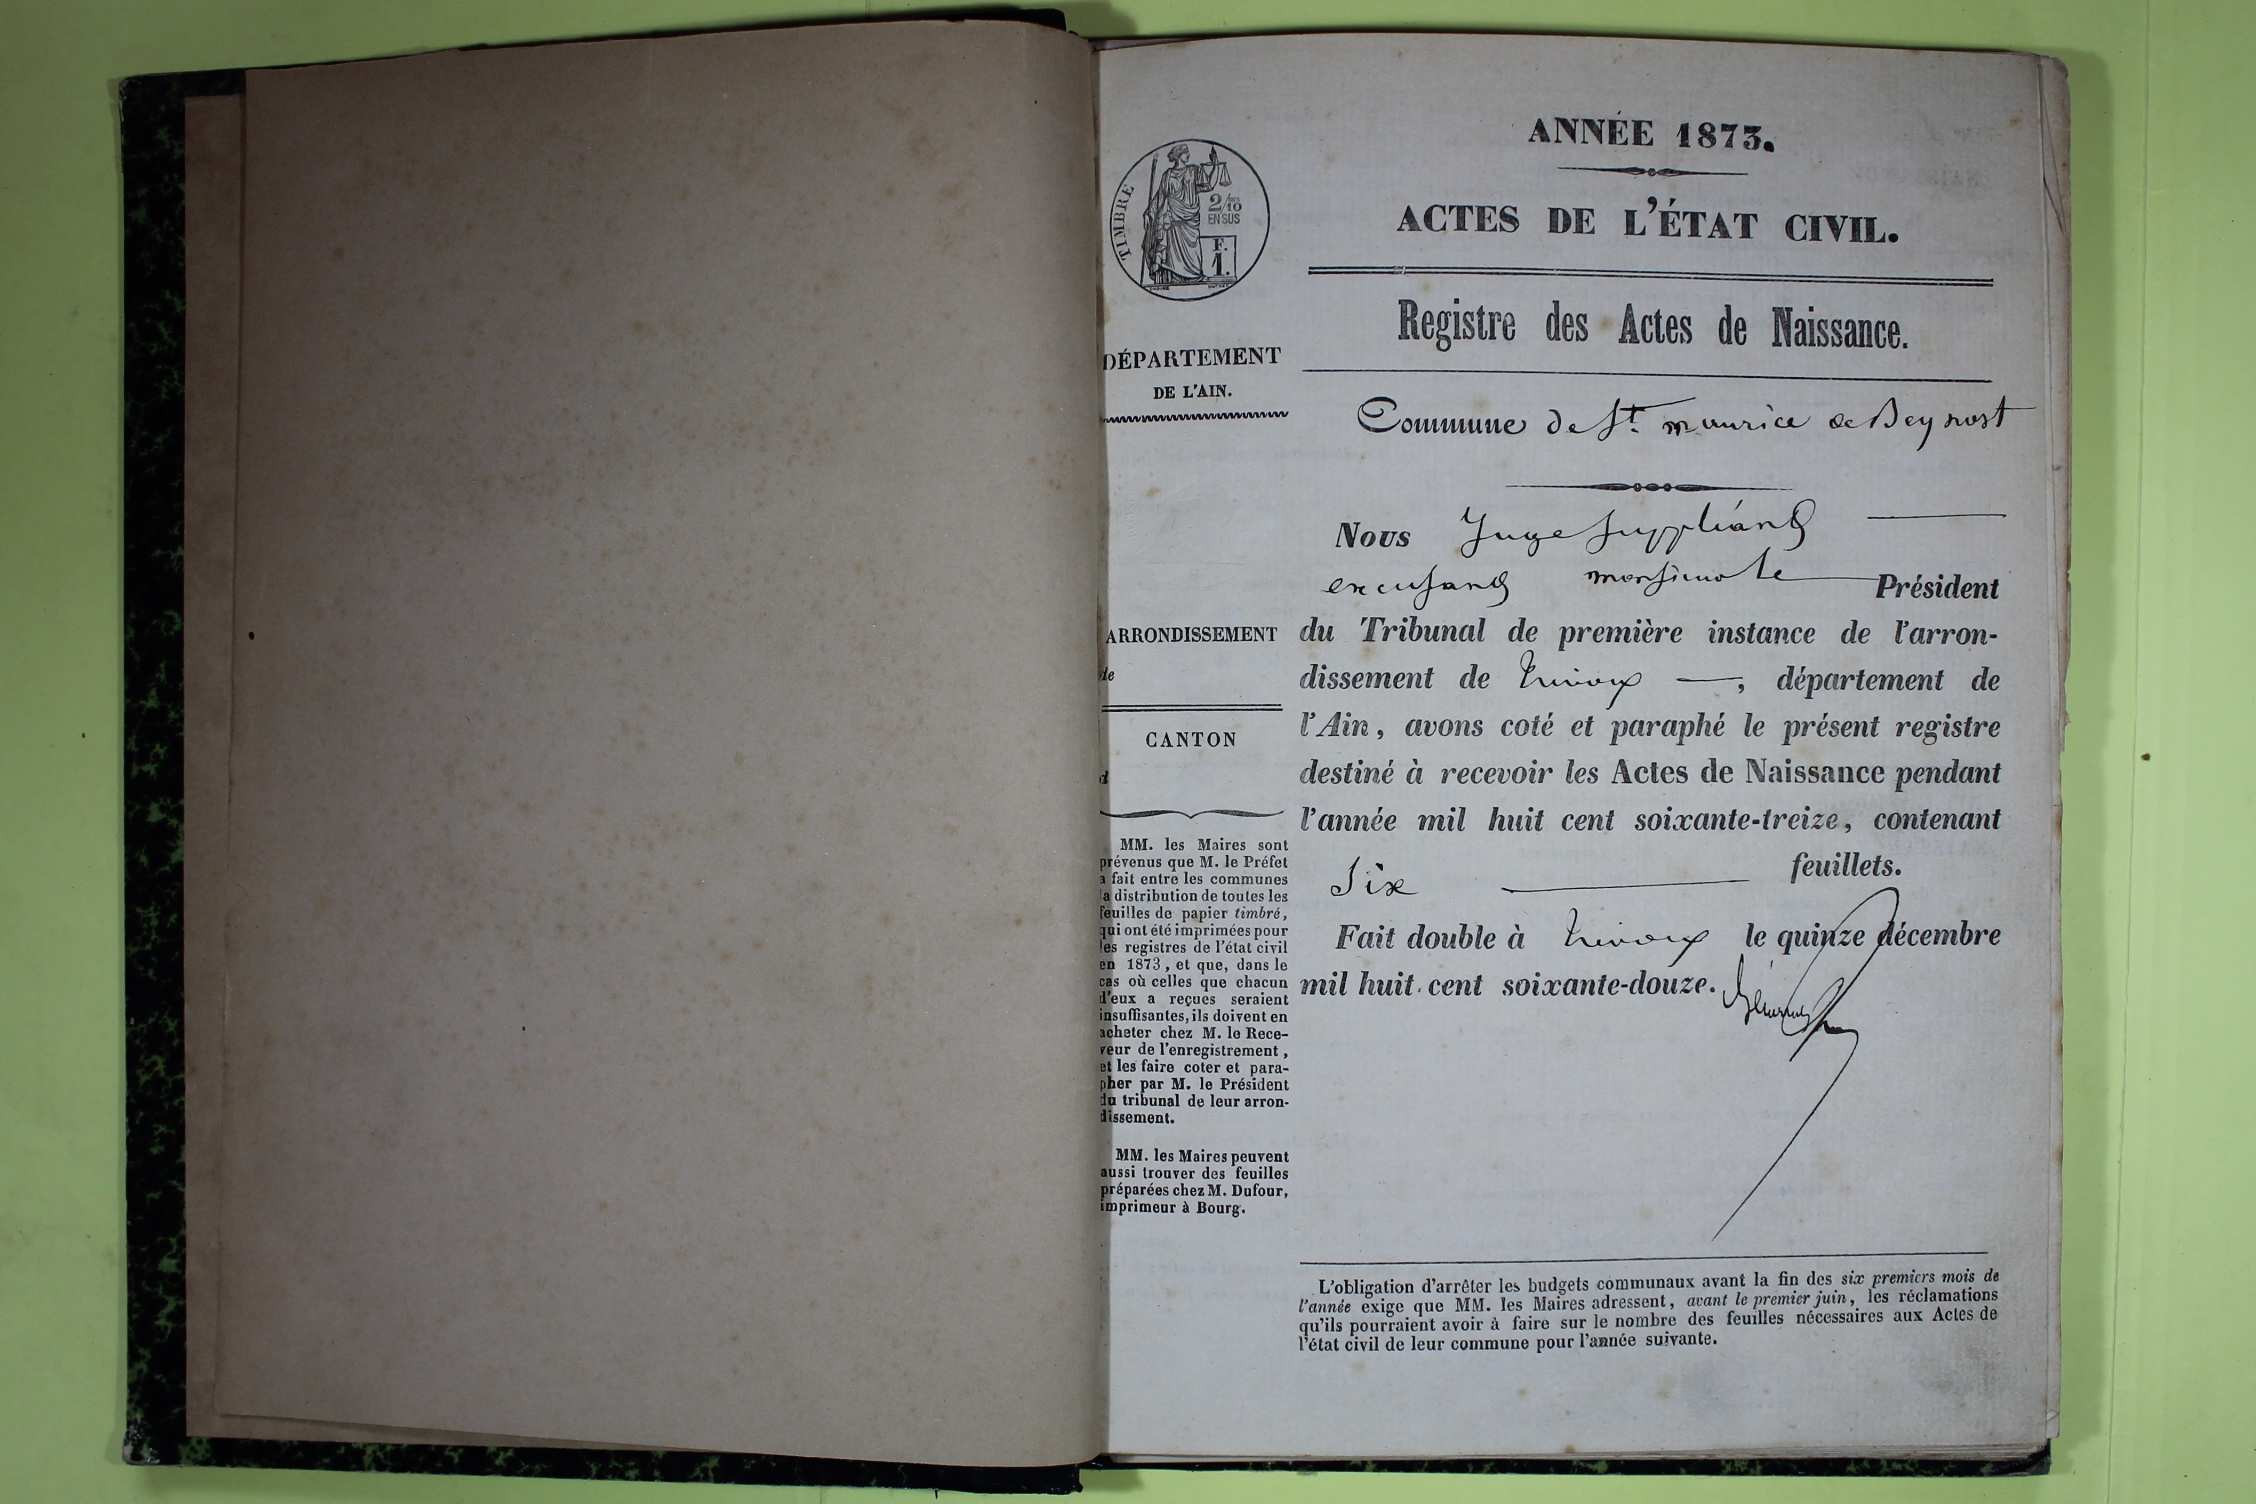 TIMBRE
2/10
EN SUS
F.
1.
DÉPARTEMENT
DE L'AIN.
ARRONDISSEMENT
de
CANTON
d
MM. les Maires sont
prévenus que M. le Préfet
a fait entre les communes
la distribution de toutes les
feuilles de papier timbré,
qui ont été imprimées pour
les registres de l'état civil
en 1873, et que, dans le
cas où celles que chacun
d'eux a reçues seraient
insuffisantes, ils doivent en
acheter chez M. le Rece-
veur de l'enregistrement,
et les faire coter et para-
pher par M. le Président
du tribunal de leur arron-
dissement.
MM. les Maires peuvent
aussi trouver des feuilles
préparées chez M. Dufour,
imprimeur à Bourg.
ANNÉE 1873.
ACTES DE L'ÉTAT CIVIL.
Registre des Actes de Naissance.
Commune de St. maurice de Beynost
Nous Juge suppléant
monsieur le Président
du Tribunal de première instance de l'arron-
dissement de Trévoux, département de
l'Ain, avons coté et paraphé le présent registre
destiné à recevoir les Actes de Naissance pendant
l'année mil huit cent soixante-treize, contenant
Six feuillets.
Fait double à Trévoux le quinze décembre
mil huit cent soixante-douze.
L'obligation d'arrêter les budgets communaux avant la fin des six premiers mois de
l'année exige que MM. les Maires adressent, avant le premier juin, les réclamations
qu'ils pourraient avoir à faire sur le nombre des feuilles nécessaires aux Actes de
l'état civil de leur commune pour l'année suivante.